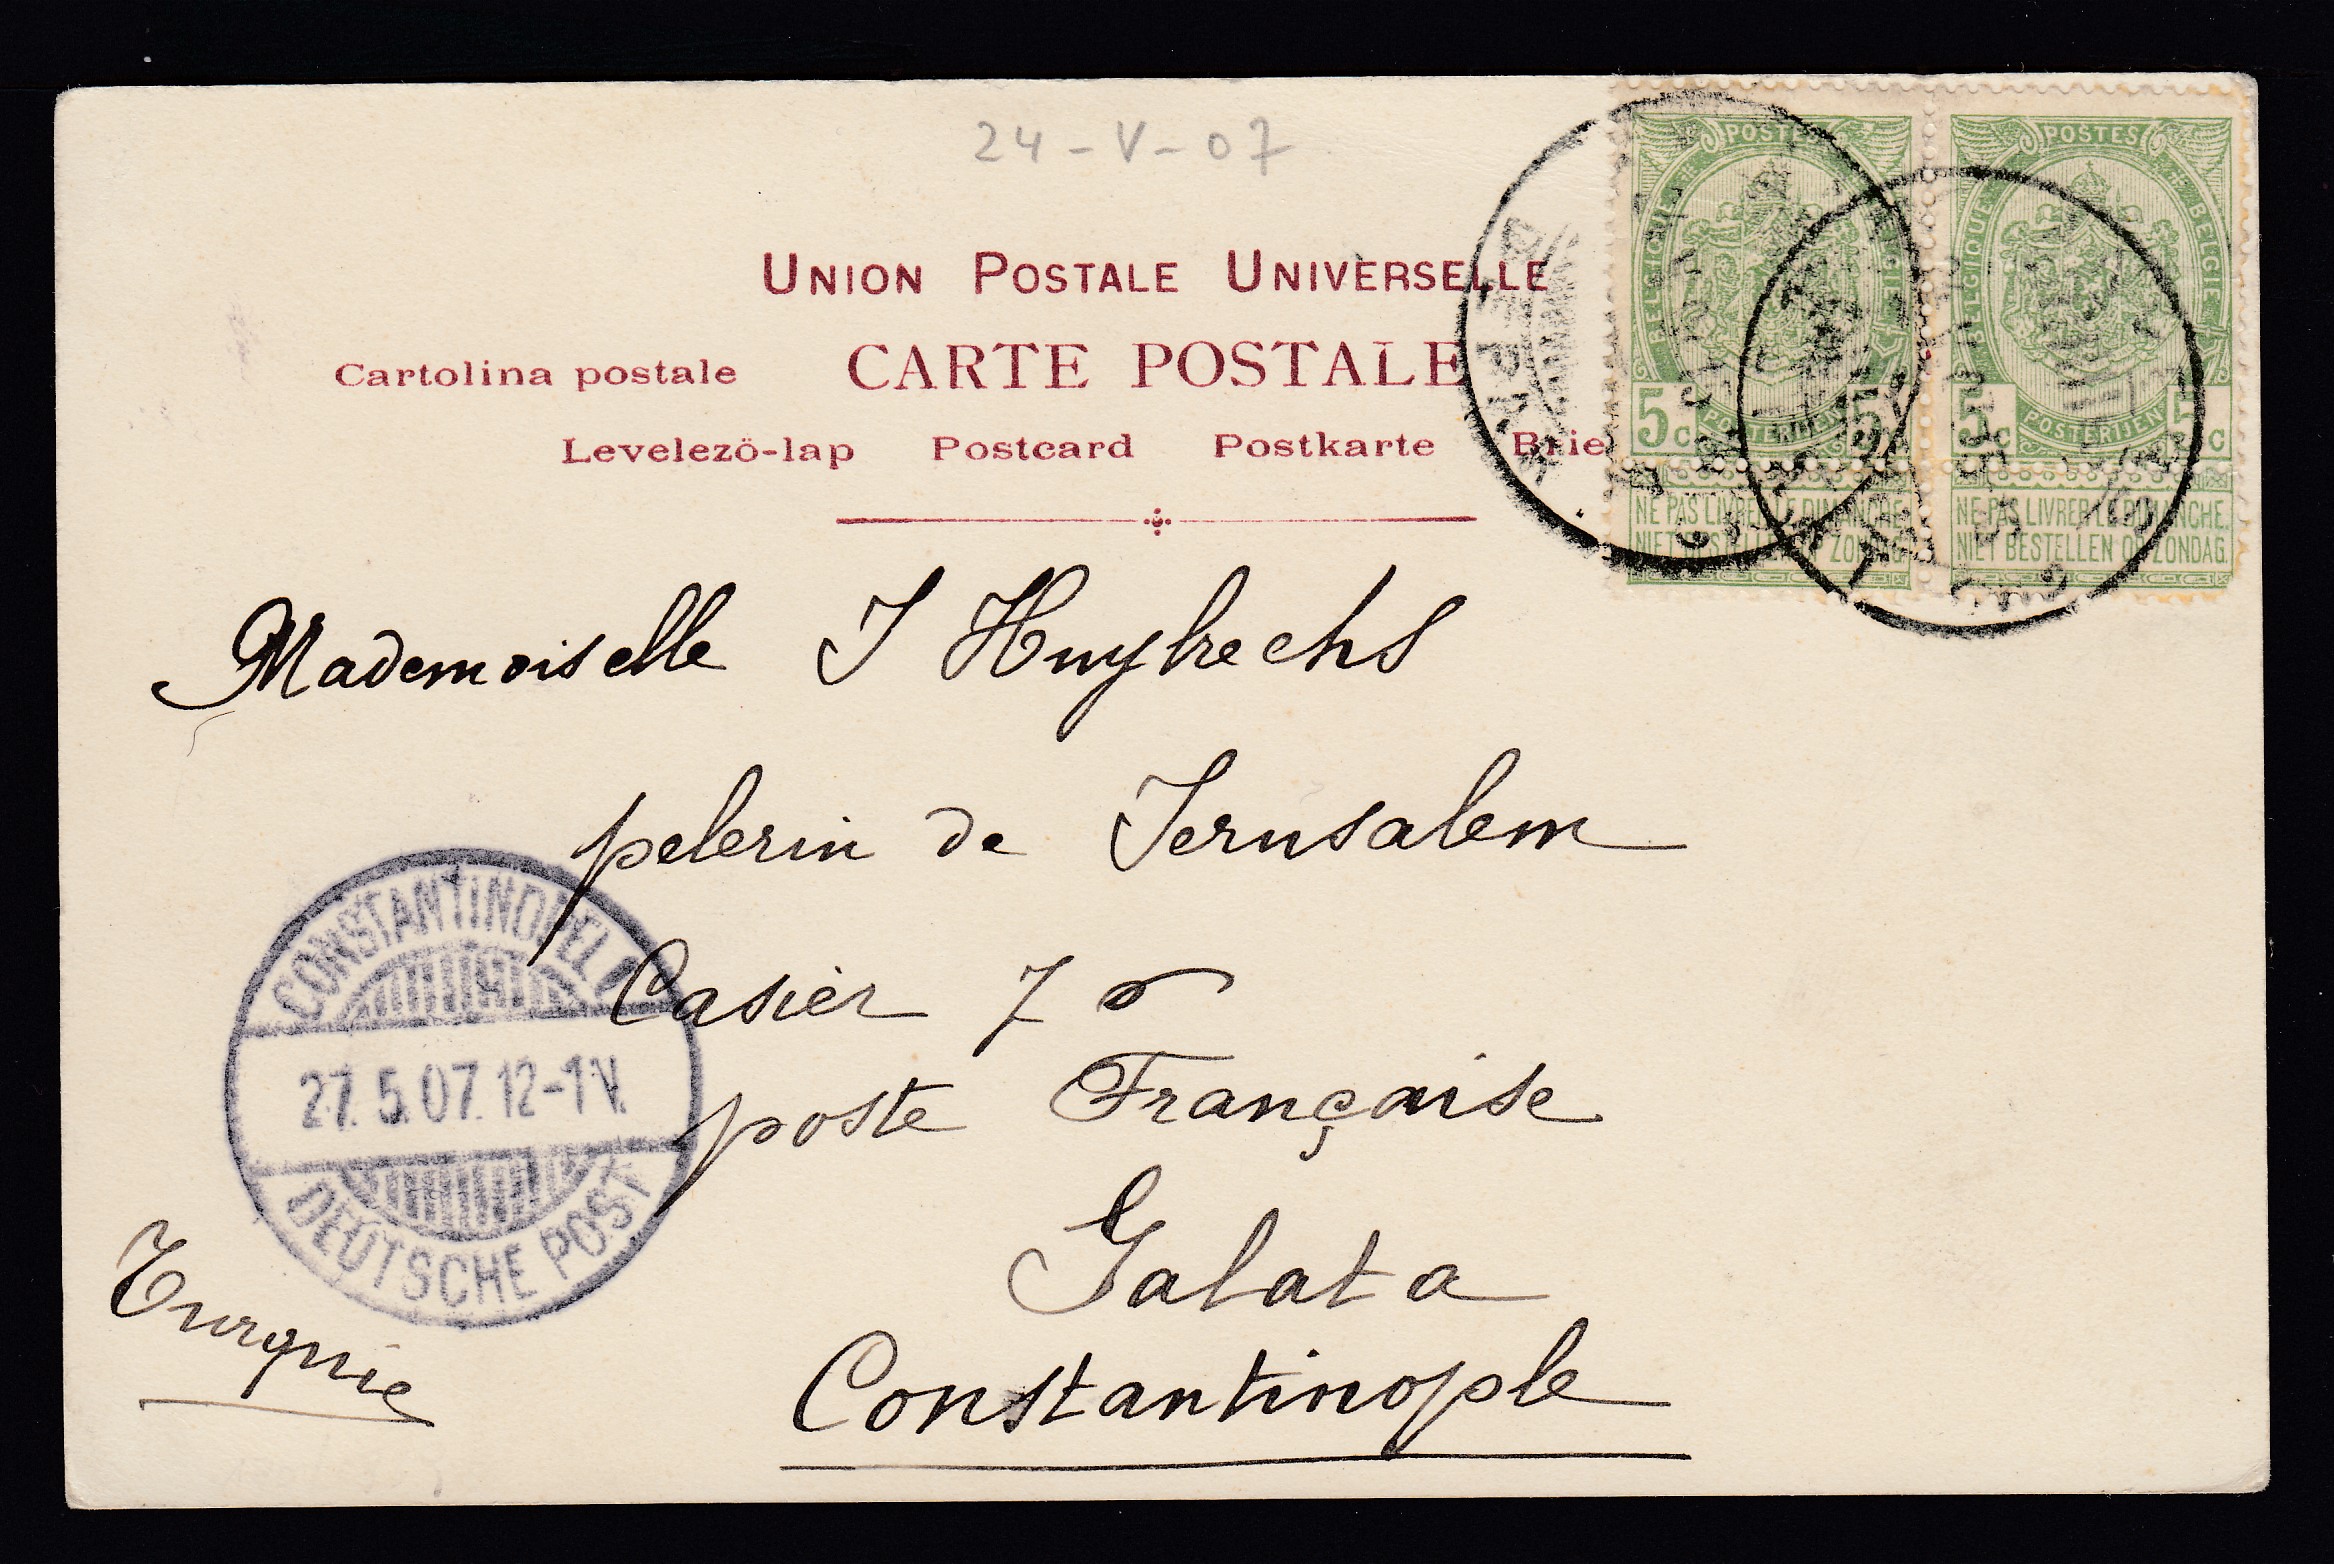 24-V-07
UNION POSTALE UNIVERSELLE
Cartolina postale CARTE POSTALE
Levelezö-lap Postcard Postkarte Brie
POSTES
BELGIQUE BELGIE
5c 5
POSTERIJEN
NE PAS LIVRER LE DIMANCHE
NIET BESTELLEN OP ZONDAG
POSTES
BELGIQUE BELGIE
5c 5c
POSTERIJEN
NE PAS LIVRER LE DIMANCHE.
NIET BESTELLEN OP ZONDAG.
Mademoiselle J Huybrechs
pelerin de Jerusalem
Casier 7
poste Française
Galata
Constantinople
Turquie
CONSTANTINOPEL 1
27.5.07.12-1V.
DEUTSCHE POST